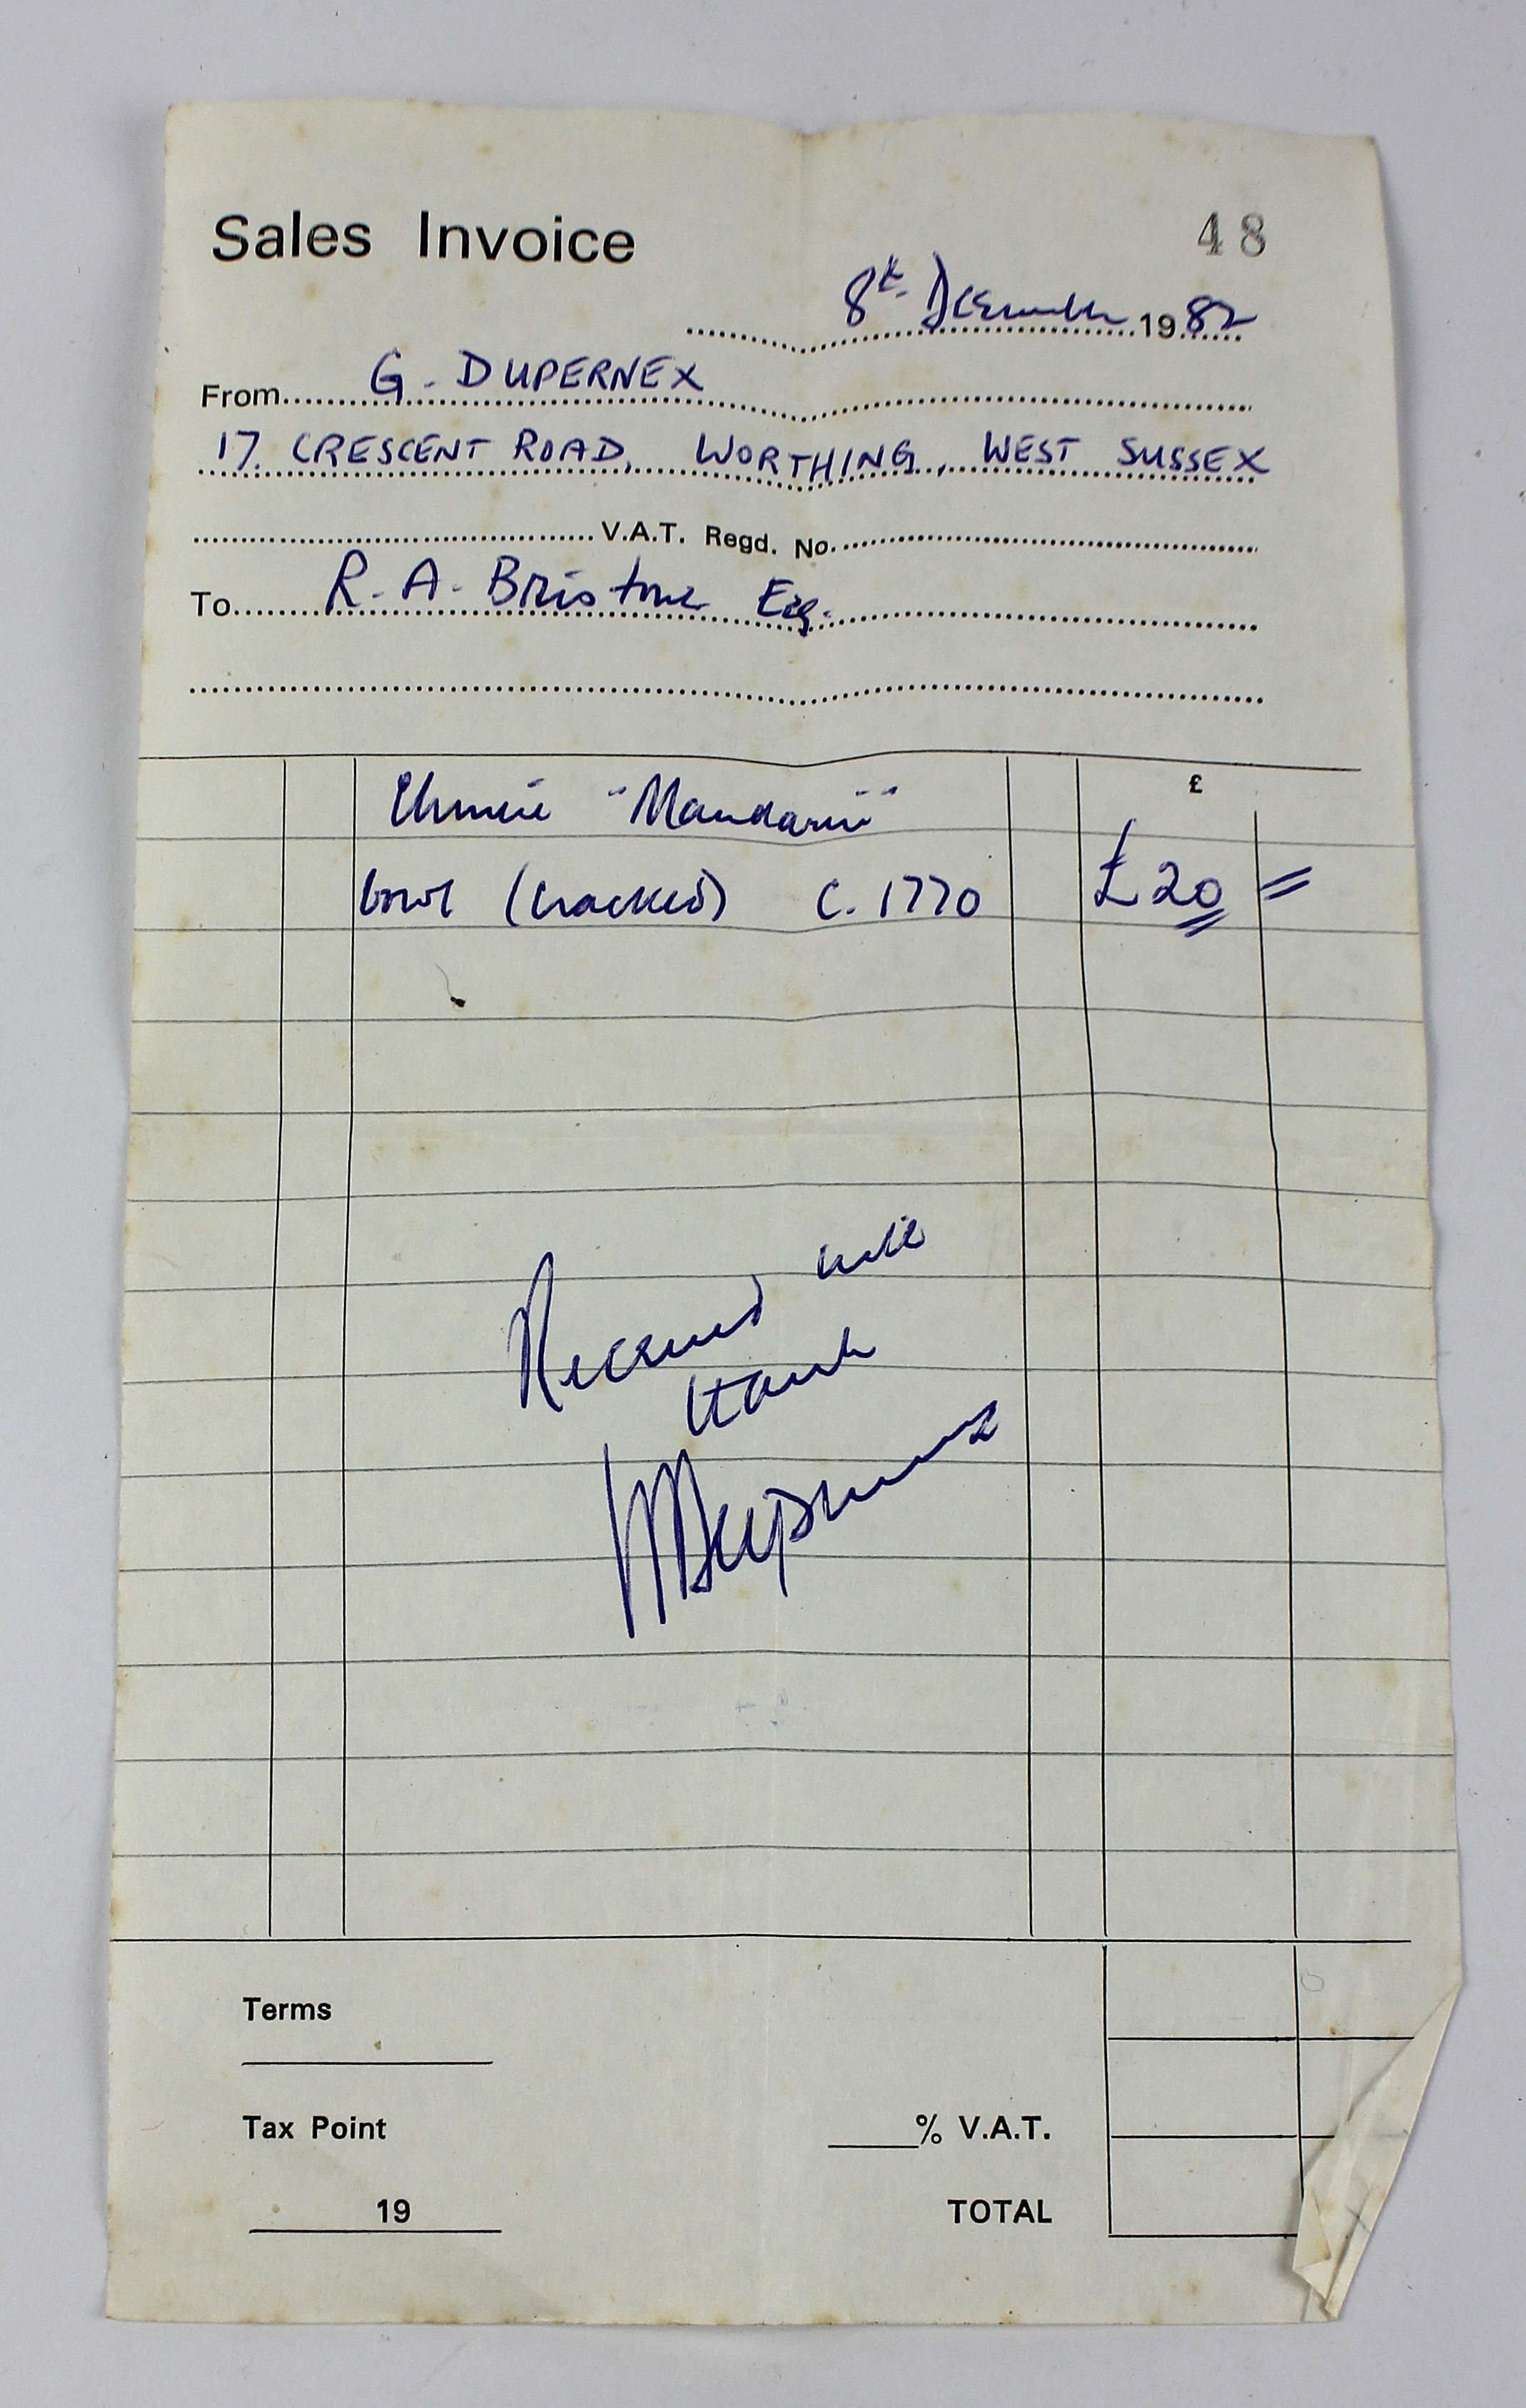 Sales Invoice 48
8th December 1982
From G. DUPERNEX
17. CRESCENT ROAD, WORTHING, WEST SUSSEX
V.A.T. Regd. No.
To R. A. Bristow Esq.
£
Chinese "Mandarin"
bowl (cracked) c. 1770 £20 =
Received with
thanks
Terms
Tax Point % V.A.T.
19 TOTAL